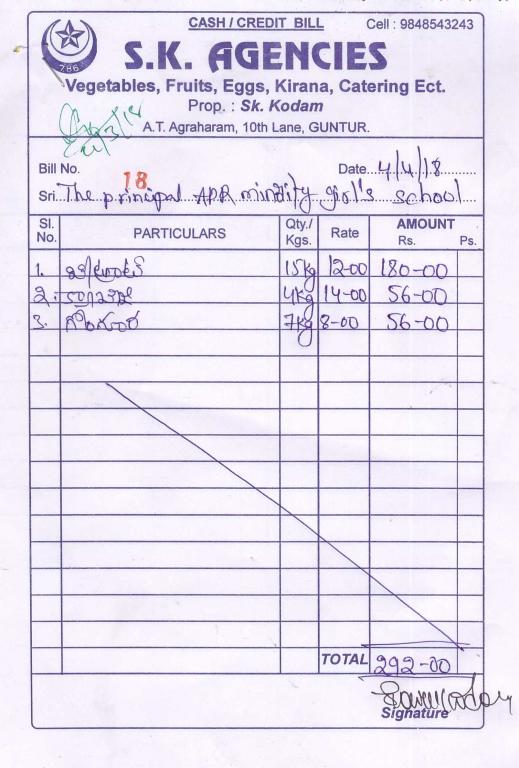 CASH / CREDIT BILL Cell : 9848543243
786
S.K. AGENCIES
Vegetables, Fruits, Eggs, Kirana, Catering Ect.
Prop. : Sk. Kodam
A.T. Agraharam, 10th Lane, GUNTUR.
Bill No. 18 Date 4/4/18
Sri. The principal APR minority girl's school
Sl. No. PARTICULARS Qty./ Kgs. Rate AMOUNT Rs. Ps.
1. 15kg 12-00 180-00
2. 4kg 14-00 56-00
3. 7kg 8-00 56-00
TOTAL 292-00
Signature